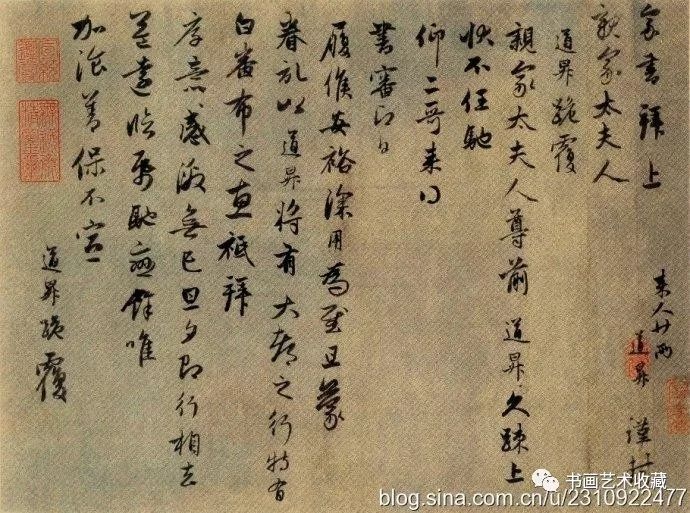 家書拜上
親家太夫人
道昇 謹封
道昇跪覆
親家太夫人尊前 道昇久疎上
状不任馳
仰二哥来得
書審即日
履候安裕深用為慰且蒙
眷記以道昇將有大都之行特有
白番布之惠祗拜
厚意感激無已旦夕即行相去
益遠臨紙馳戀餘唯
加飡善保不宣
道昇跪覆
书画艺术收藏
blog.sina.com.cn/u/2310922477